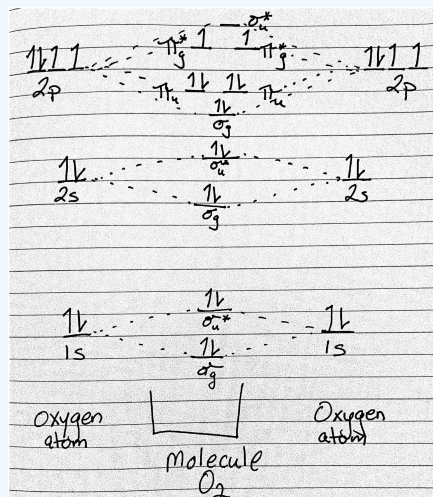 σu*
πg* 1 1 πg*
1l 1 1
2p
1l 1 1
2p
πu 1l 1l πu
1l
σg
1l
σu*
1l
2s
1l
2s
1l
σg
1l
σu*
1l
1s
1l
1s
1l
σg
Oxygen
atom
Oxygen
atom
Molecule
O2